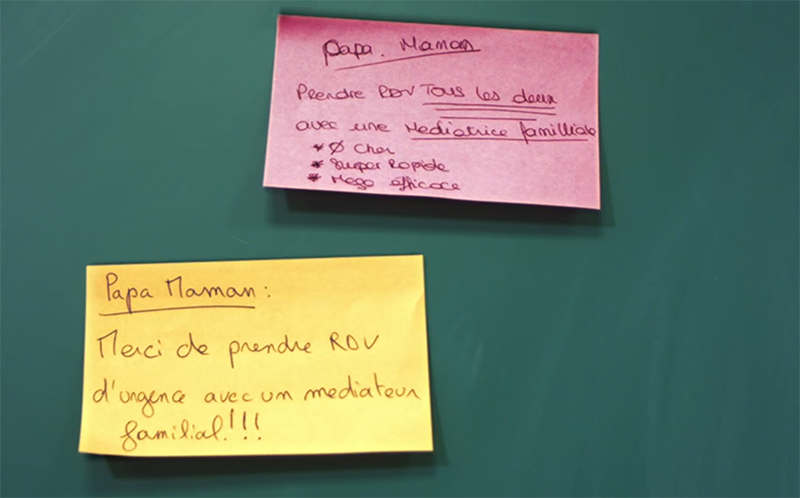 Papa. Maman
Prendre RDV Tous les deux
avec une Mediatrice familliale
* Ø Cher
* Super Rapide
* Mega efficace
Papa Maman :
Merci de prendre RDV
d'urgence avec un mediateur
familial!!!